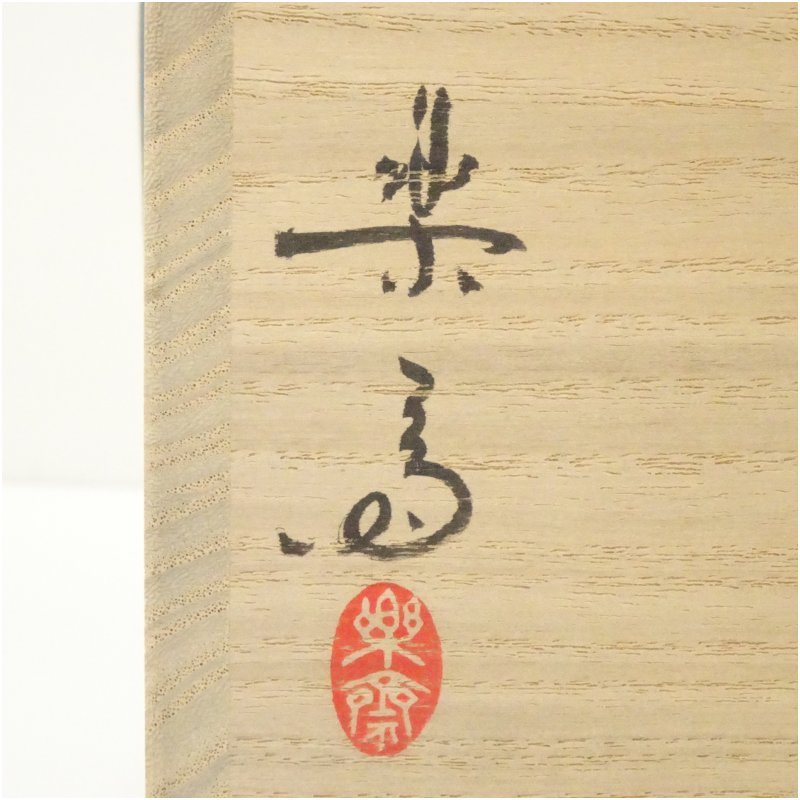 楽斎
樂齋